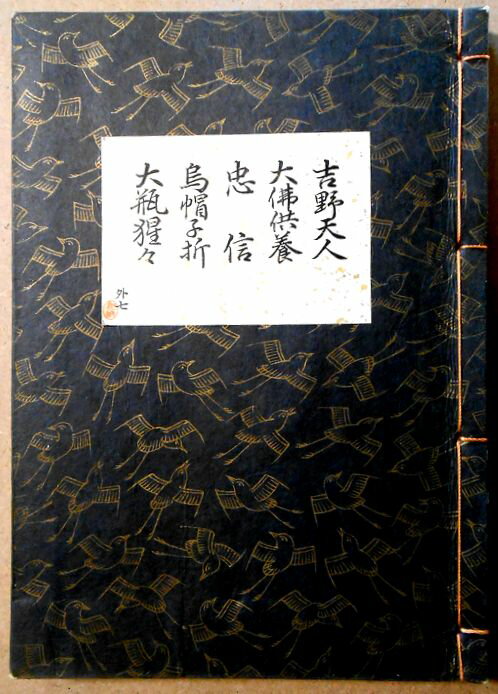 吉野天人
大佛供養
忠信
烏帽子折
大瓶猩々
外七